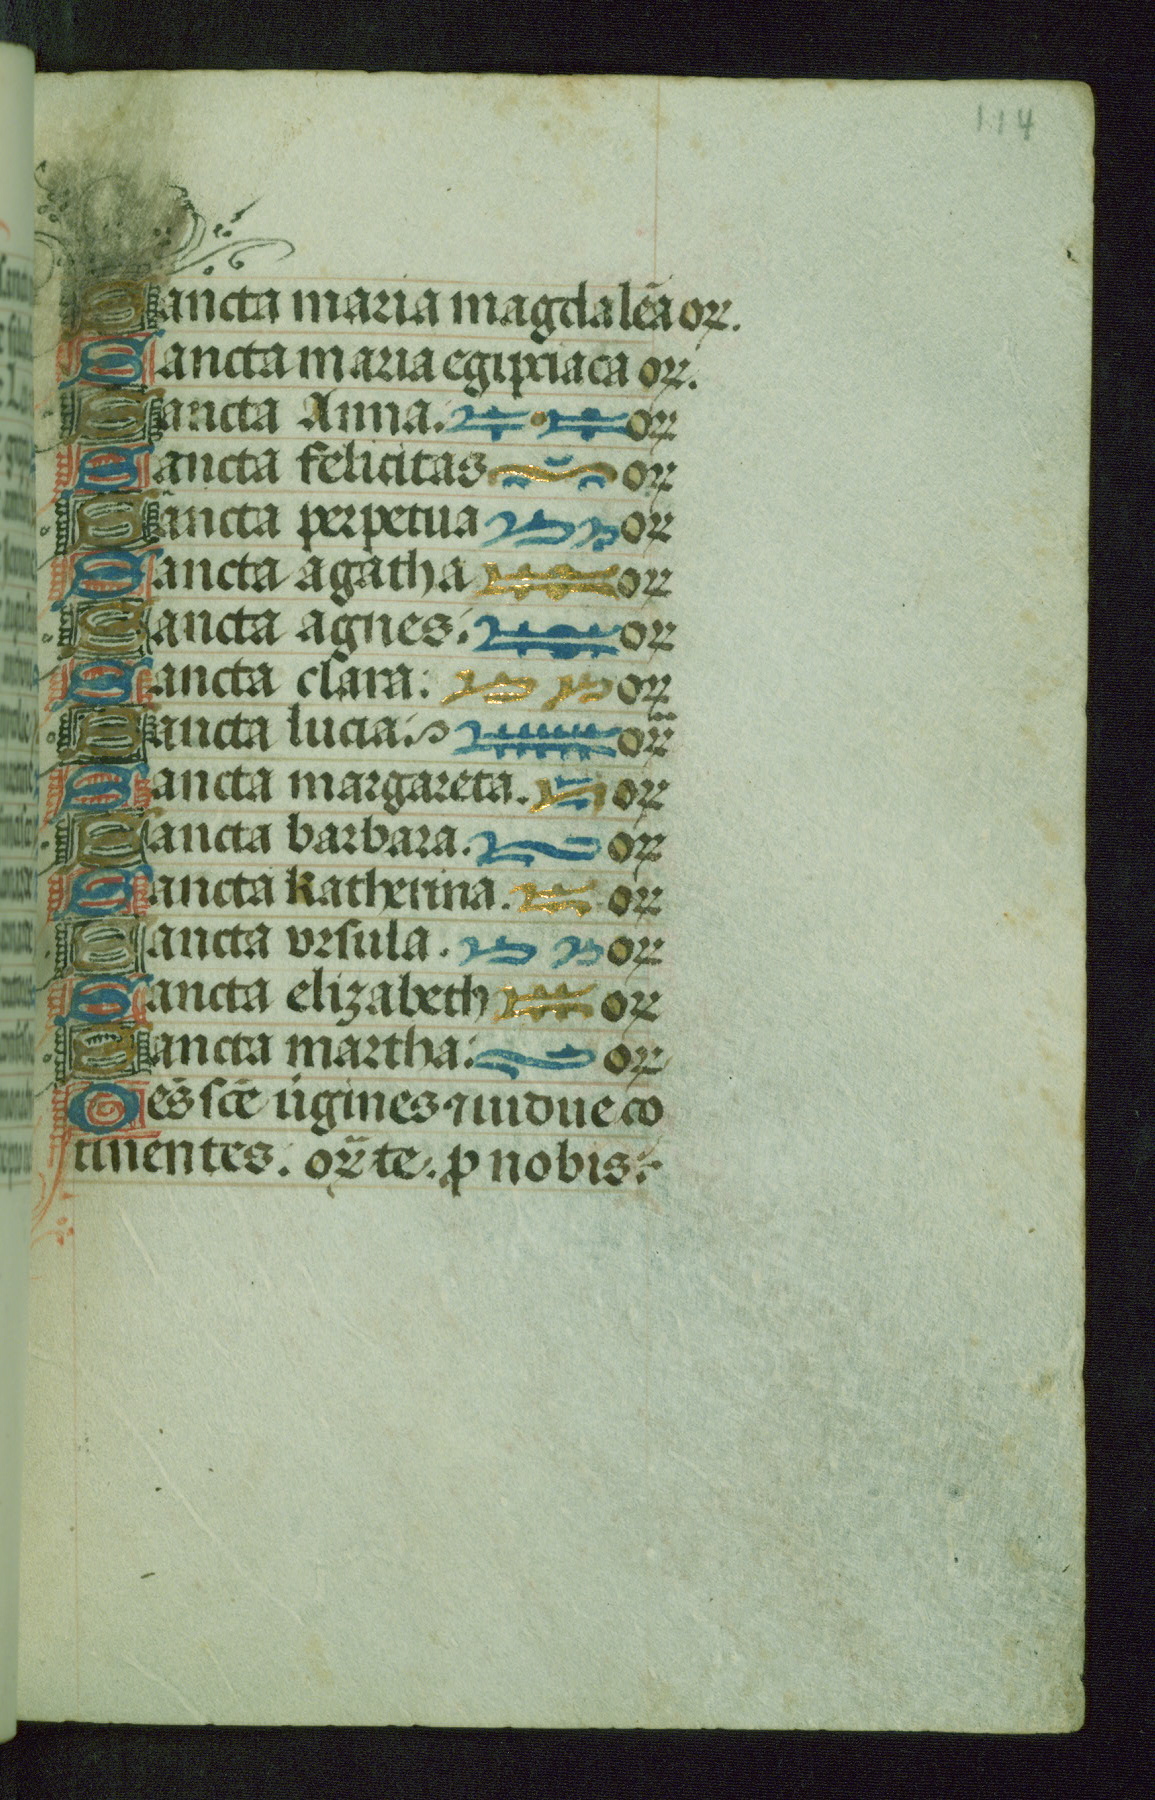 114
Sancta maria magdalēa or.
Sancta maria egipciaca or.
Sancta Anna. or
Sancta felicitas or
Sancta perpetua or
Sancta agatha or
Sancta agnes. or
Sancta clara. or
Sancta lucia. or
Sancta margareta. or
Sancta barbara. or
Sancta katherina. or
Sancta vrsula. or
Sancta elizabeth or
Sancta martha. or
Oēs scē ūgines ⁊ uidue co
tinentes. orāte. p nobis.